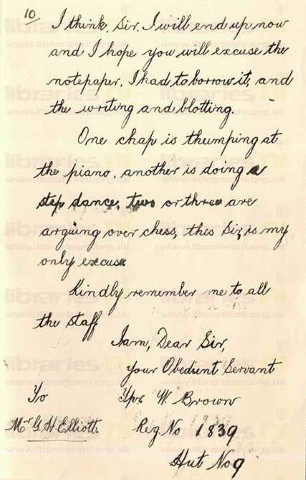 10
I think, Sir, I will end up now
and I hope you will excuse the
notepaper, I had to borrow it, and
the writing and blotting.
One chap is thumping at
the piano, another is doing a
step dance, two or three are
arguing over chess, this Sir, is my
only excuse
Kindly remember me to all
the staff
I am, Dear Sir,
Your Obedient Servant
To Tpr W. Brown
Mr G. H. Elliott Reg No 1839
Hut No 9